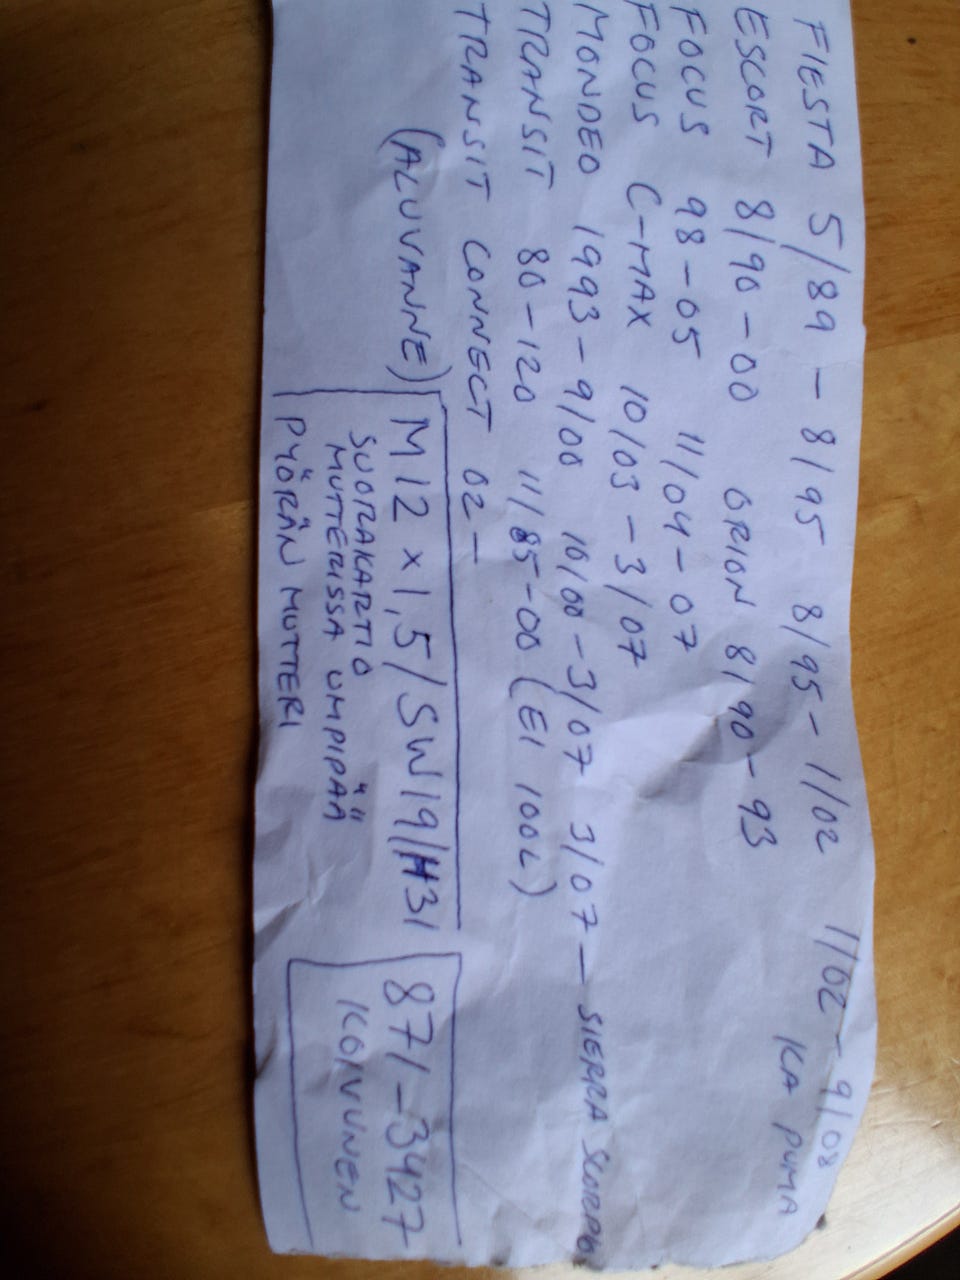 FIESTA 5/89 – 8/95 8/95 – 1/02 1/02 – 9/08
ESCORT 8/90 – 00 ORION 8/90 – 93 KA PUMA
FOCUS 98 – 05 11/04 – 07
FOCUS C-MAX 10/03 – 3/07
MONDEO 1993 – 9/00 10/00 – 3/07 3/07 — SIERRA SCORPIO
TRANSIT 80 – 120 11/85 – 00 (EI 100L)
TRANSIT CONNECT 02 –
(ALUVANNE) M12 x1,5/SW19/H31 871 – 3427
SUORAKARTIO KOIVUNEN
MUTTERISSA UMPIPÄÄ
PYÖRÄN MUTTERI